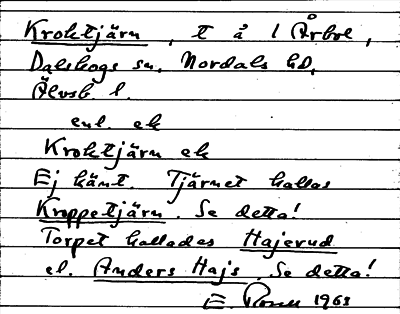 Kroktjärn, t å 1 Årbol,
Dalskogs sn, Nordals hd,
Älvsb. l.
enl. ek
Kroktjärn ek
Ej känt. Tjärnet kallas
Kroppetjärn. Se detta!
Torpet kallades Hajerud
el. Anders Hajs. Se detta!
E. Rosell 1963